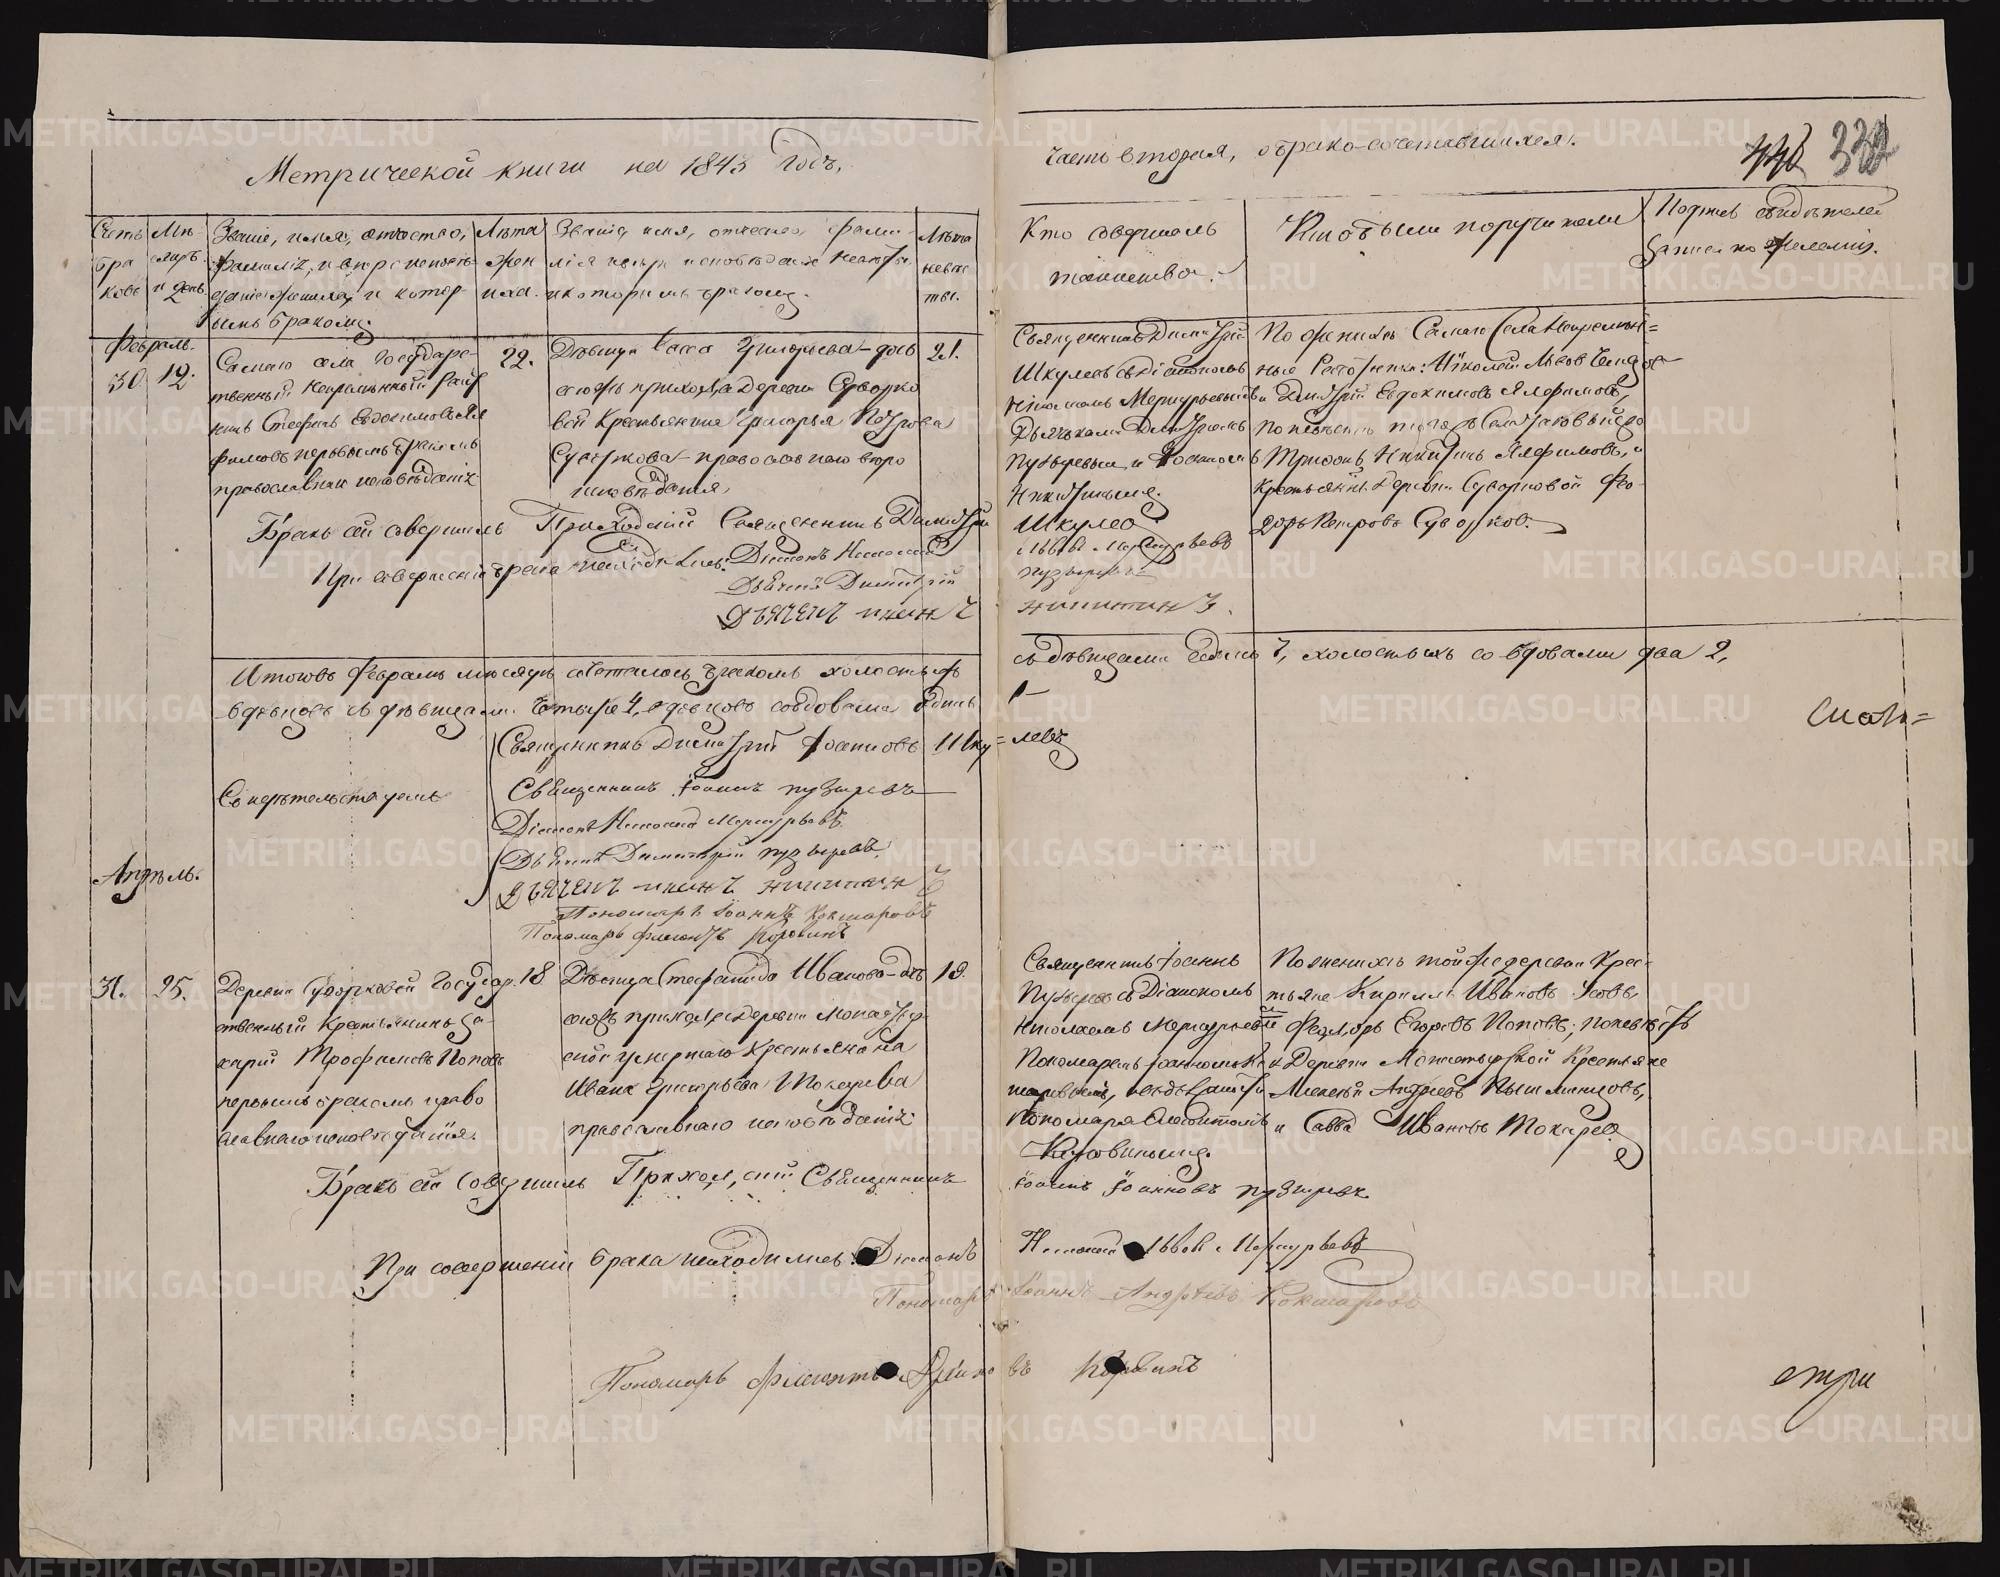 Метрической книги на 1843 годъ.
часть вторая, о бракосочетавшихся.
332
Счетъ браковъ
Мѣсяцъ и день
Званіе, имя, отчество,
фамилія, и вѣроисповѣ-
даніе жениха, и котор-
ымъ бракомъ
Лѣта
жен
иха.
Званіе, имя, отчество, фами-
лія и вѣроисповѣданіе невѣсты
и которымъ бракомъ.
Лѣта
невѣс
ты.
Кто совершалъ
таинство.
Кто были поручители
Подпись свидѣтелей
записи по желанію.
Февраль.
30.
12.
Самаго села Государс-
твенный Непремѣнный Рабт
никъ Стефанъ Евдокимовъ Ял
фимовъ первымъ бракомъ
православнаго исповѣданія
22.
Дѣвица Васса Григорьева дочь
сегожъ прихода деревни Суворко
вой Крестьянина Григорья Петрова
Суворкова православнаго вѣро
исповѣданія,
21.
Священникъ Димитрій
Шкулевъ съ Діакономъ
Николаемъ Меркурьевымъ
Дьячками Димитріемъ
Пузыревым и Іоанномъ
Никитиным.
По женихѣ Самаго Села Непремѣн=
ные Работники: Николай Львовъ
и Димитрій Евдокимовъ Ялфимовъ,
по невѣстѣ
Никитинъ Ялфимовъ, и
Крестьянинъ Деревни Суворковой Фе-
доръ Петровъ Суворковъ.
Бракъ сей совершалъ Приходскій Священникъ Димитрій
Шкулевъ
При совершеніи брака находились: Діаконъ Николай
Львовъ Меркурьевъ
Дьячекъ Димитрій
Пузыревъ
Дьячекъ Иоанъ
Никитинъ.
Итого въ Февралѣ мѣсяцѣ сочеталось бракомъ холостыхъ
съ дѣвицами единъ 1, холостыхъ со вдовами два 2,
вдовцовъ съ дѣвицами четыре 4, вдовцовъ со вдовами единъ
1
Священникъ Димитрій Іоанновъ Шку=
левъ
Смот=
Священникъ Іоаннъ Пузыревъ
Діаконъ Николай Меркурьевъ
Дьячекъ Димитрій Пузыревъ.
Дьячекъ Иоанъ Никитинъ
Пономарь Іоаннъ Кокшаровъ
Пономарь Флегонтъ Коровинъ
Апрѣль.
31.
25.
Деревни Суворковой Государ-
ственный Крестьянинъ За-
харій Трофимовъ Поповъ
первымъ бракомъ право
славнаго исповѣданія.
18
Дѣвица Стефанида Иванова дчь
сегожъ прихода деревни Монастыр
ской умершаго Крестьянина
Ивана Григорьева Токарева
православнаго исповѣданія
19.
Священникъ Іоаннъ
Пузыревъ съ Діакономъ
Николаемъ Меркурьевымъ
Пономаремъ Іоанномъ Кок
шаровымъ,
Пономаря Флегонтомъ
Коровинымъ.
По женихѣ тойже деревни Крес-
тьяне Кириллъ Ивановъ Усовъ,
и Федоръ Егоровъ Поповъ; по невѣстѣ
Деревни Монастырской Крестьяне
Алексѣй Андреевъ Пышминцовъ,
и Савва Ивановъ Токаревъ
Бракъ сей Совершилъ Приходскій Священникъ
Іоаннъ Іоанновъ Пузыревъ.
При совершеніи брака находились: Діаконъ
Николай Львовъ Меркурьевъ
Пономарь Іоаннъ Андреевъ Кокшаровъ
Пономарь Флегонтъ
Коровинъ
отри